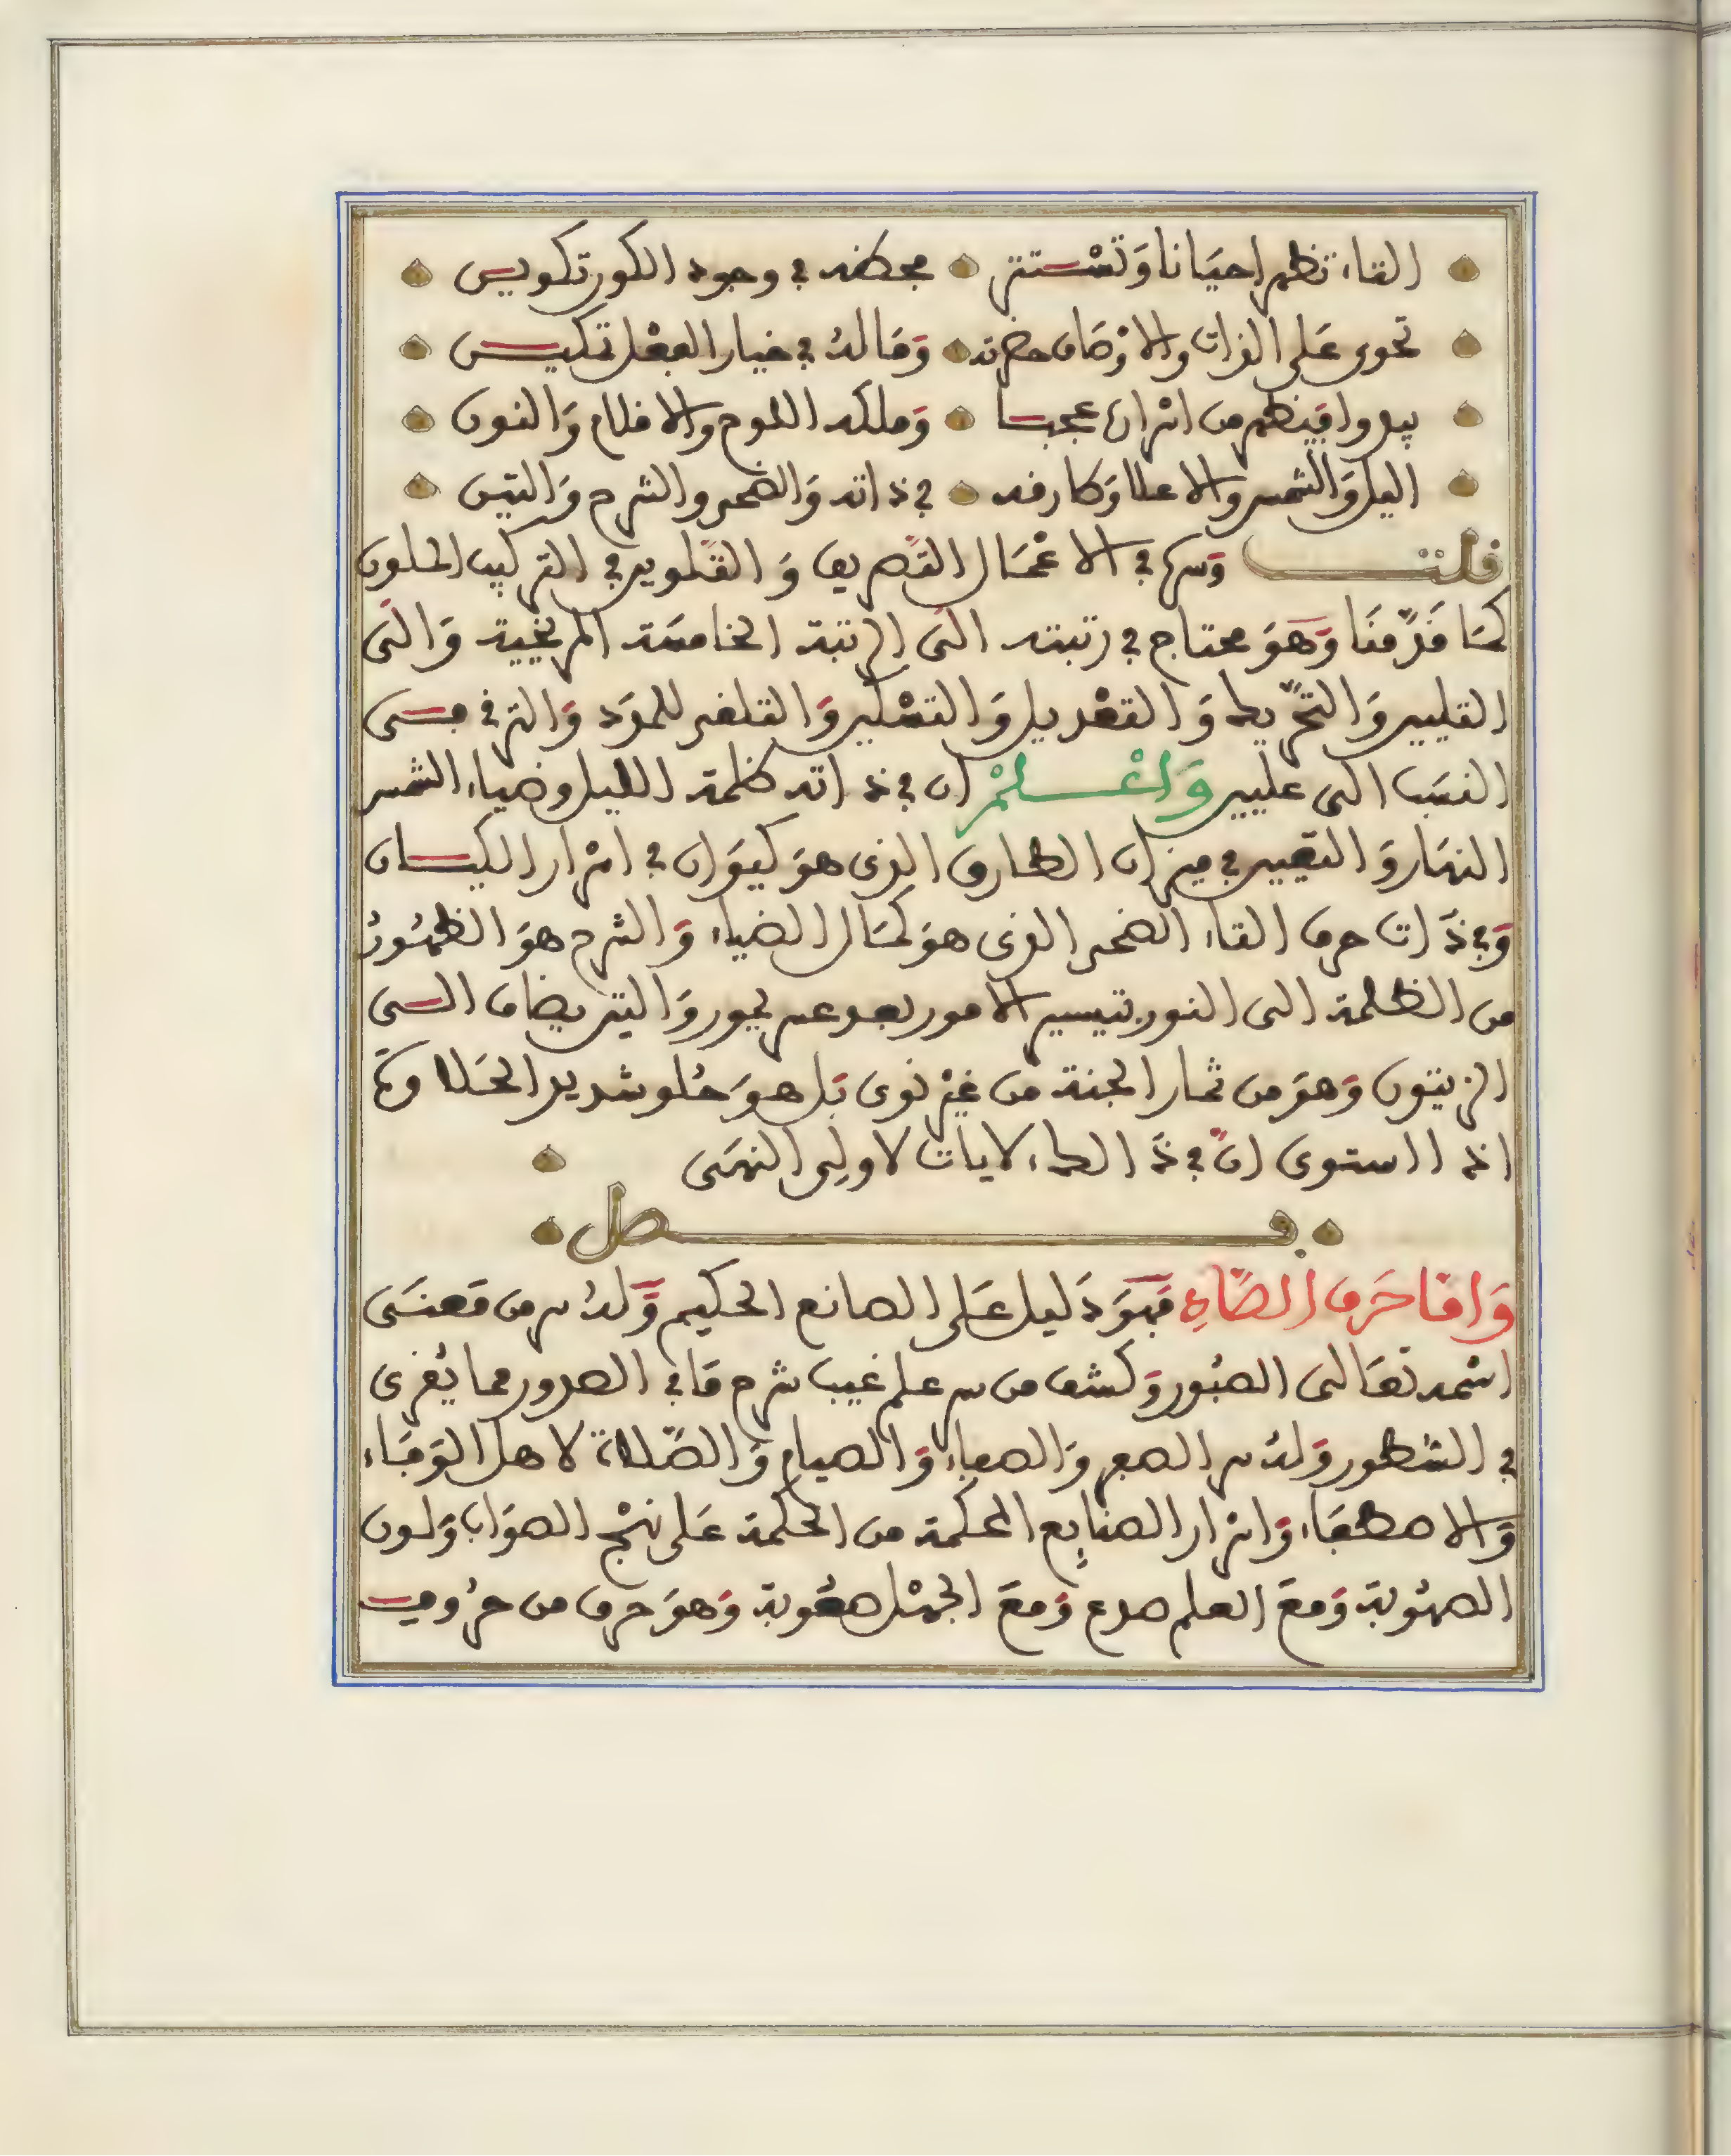 التاء تظهر احيانا وتستتر محظه في وجود الكور تكويس
تحوى على الذات والاوصاف حضرته وماله في خيار الفعل تكيس
يبدوا فيظهر من اسراره عجبا وملكه اللوح والاقلام والنون
اليل والشمس والاعلا وطارقه في ذاته والضحى والشرح والتين
قلت وسرها في الاعمال التصريف والتلوين في التركيب الحلون
كما قدمنا وهو محتاج في رتبته الى الرتبة الخامسة المريخية والى
التليين والتحريك والتعديل والتسكين والتلغى للمود والترقى مسى
النسب الى عليين واعلم ان في ذاته ظلمة الليل وضياء الشمس
النهار والتعيين في ميزان الطارق الذى هو كيوان في اسرار الكيان
وفي ذات حرف التاء الضحى الذى هو كمال الضياء والشرح هو الظهور
من الظلمة الى النور بتيسير الامور بعد عسر يجور والتين يضاف الى
الزيتون وهو من ثمار الجنة من غير نوى بل هو حلو شديد الحلاوة
اذا استوى ان في ذالك لايات لاولى النهى
فصل
واما حرف الصاد فهو دليل على الصانع الحكيم وله سر من معنى
اسمه تعالى الصبور وكشف من سر علم غيب شرح ما في الصدور مما يغرى
في السطور وله سر الصفو والصفاء والصيام والصلاة لاهل الوفاء
والاصطفاء واسرار الصنايع المحكمة من الحكمة على نهج الصواب ولون
الصهوبة ومع العلم صدع ومع الجهل صعوبة وهو حرف من حروف